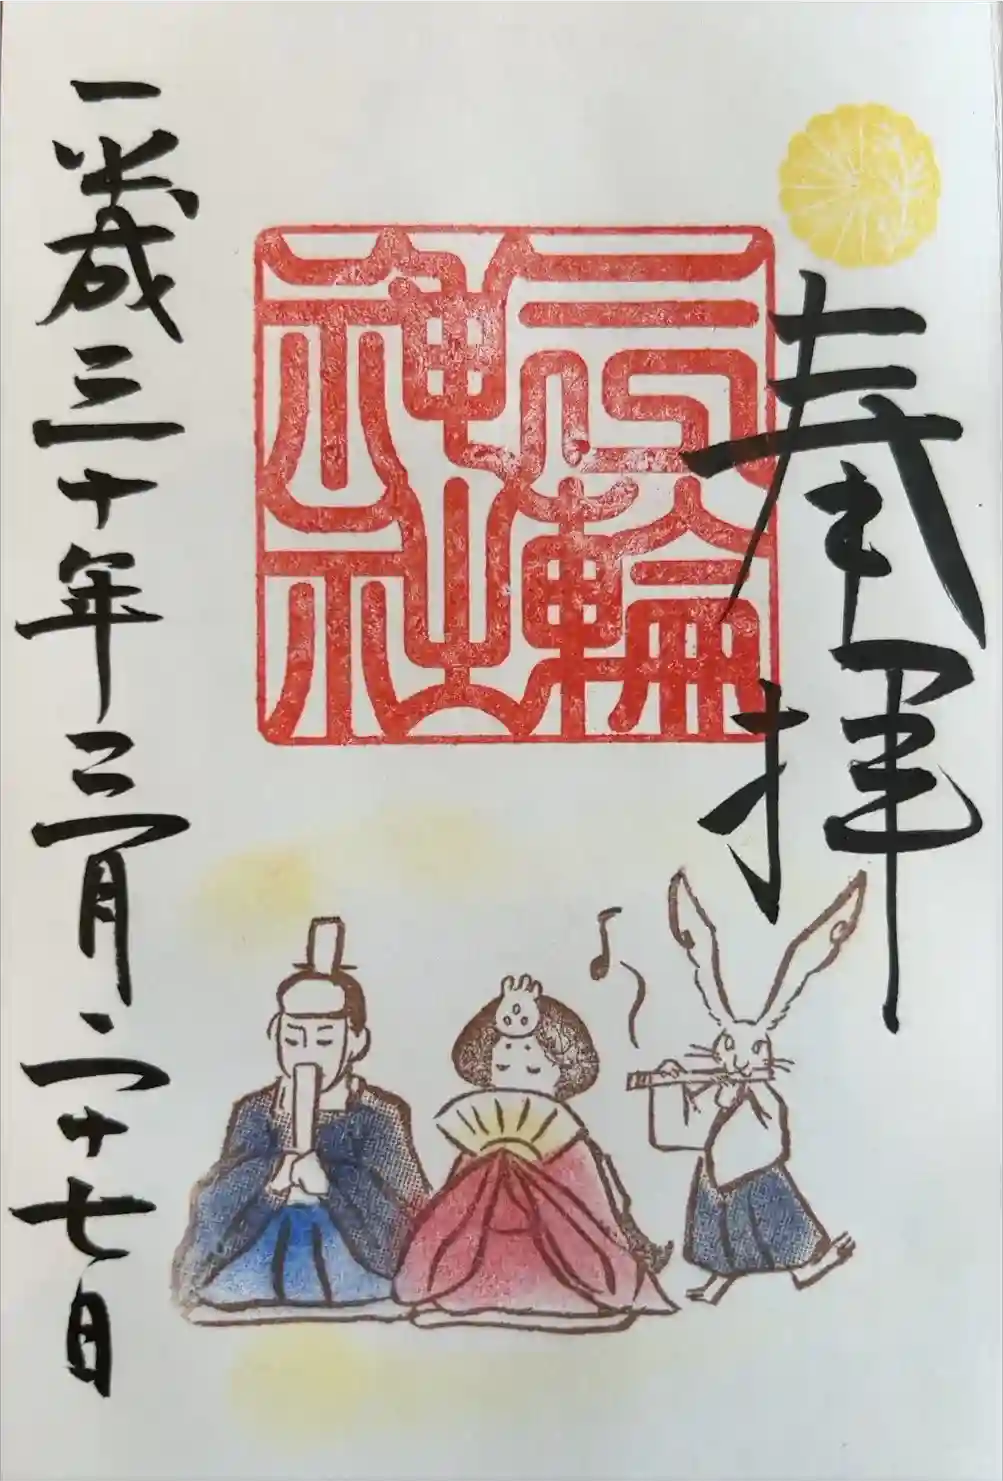 奉拝
三輪
神社
平成三十年三月二十七日